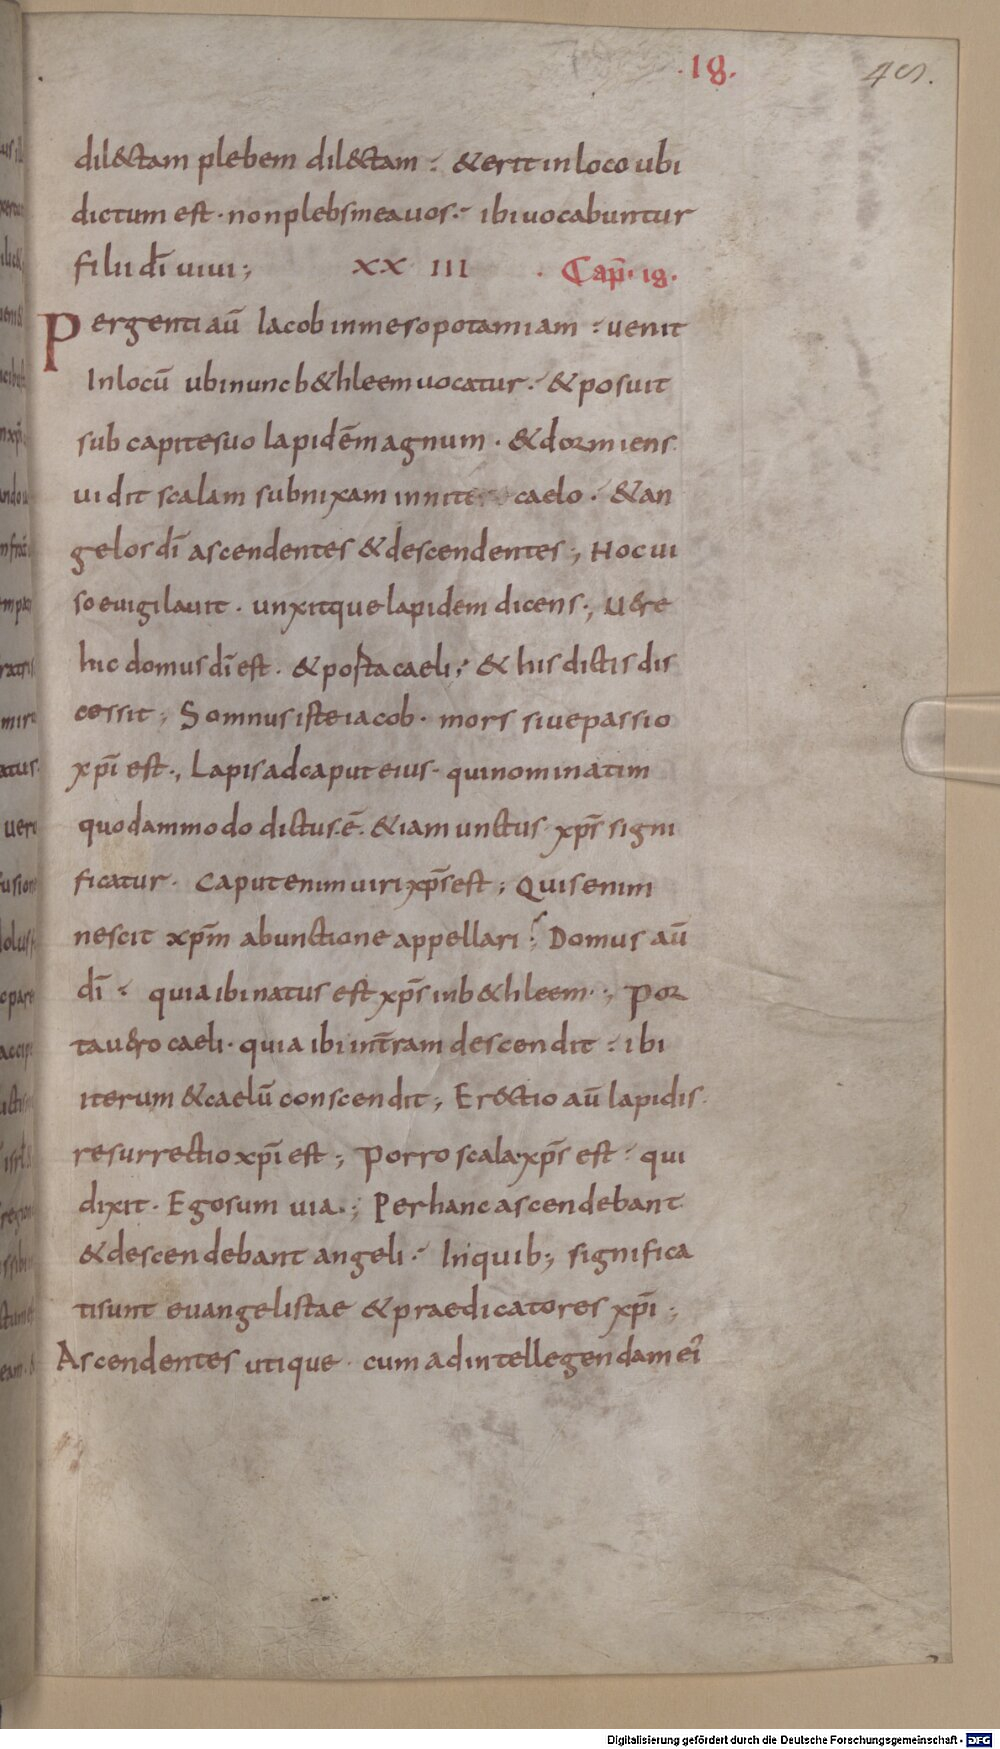 .18.
45.
dil&ctam plebem dil&ctam : & erit in loco ubi
dictum est · non plebs mea uos : ibi uocabuntur
filii dī uiui ;
XX III
Cap̄. 18.
Pergenti aū Iacob in mesopotamiam : uenit
In locū ubi nunc b&hleem uocatur : & posuit
sub capite suo lapidēm magnum · & dormiens
uidit scalam subnixam caelo · & an
gelos dī ascendentes & descendentes ; Hoc ui
so euigilauit · unxitque lapidem dicens ; Uere
hic domus dī est · & porta caeli ; & his dictis dis
cessit ; Somnus iste iacob · mors siue passio
xp̄i est ; Lapis ad caput eius · qui nominatim
quodammodo dictus · ē · & iam unctus xp̄s signi
ficatur · Caput enim uiri xp̄s est ; Quis enim
nescit xp̄m ab unctione appellari ; Domus aū
dī : quia ibi natus est xp̄s in b&hleem ; Por
ta uero caeli · quia ibi in t̄ram descendit : ibi
iterum & caelū conscendit ; Er&ctio aū lapidis
resurrectio xp̄i est ; Porro scala xp̄s est : qui
dixit · Ego sum uia ; Per hanc ascendebant
& descendebant angeli : In quib; significa
ti sunt euangelistae & praedicatores xp̄i ;
Ascendentes utique · cum ad intellegendam ei'
Digitalisierung gefördert durch die Deutsche Forschungsgemeinschaft - DFG